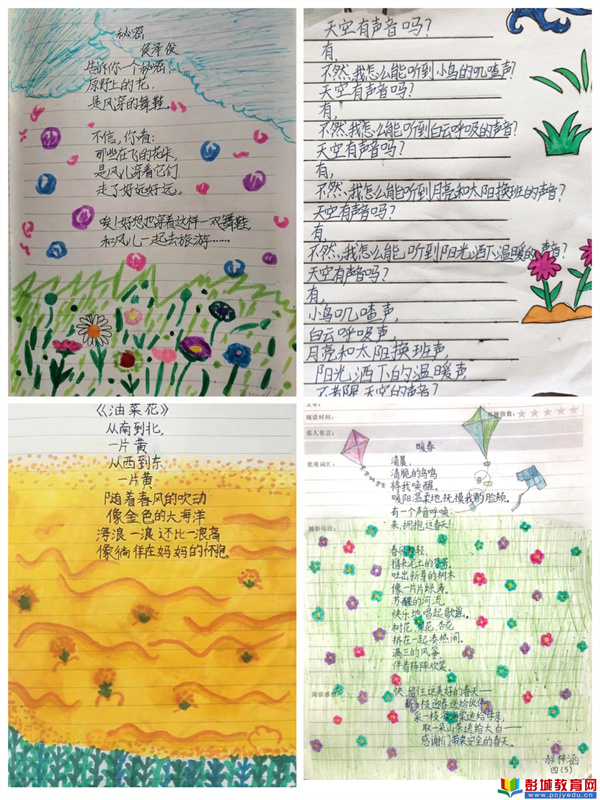 秘密
侯泽俊
告诉你一个秘密！
原野上的花，
是风穿的舞鞋。
不信，你看：
那些在飞的花朵，
是风儿穿着它们
走了好远好远。
唉！好想也穿着这样一双舞鞋，
和风儿一起去旅游……
天空有声音吗？
有，
不然，我怎么能听到小鸟的叽喳声？
天空有声音吗？
有，
不然，我怎么能听到白云呼吸的声音？
天空有声音吗？
有，
不然，我怎么能听到月亮和太阳换班的声音？
天空有声音吗？
有，
不然，我怎么能听到阳光洒下温暖的声音？
天空有声音吗？
有，
小鸟叽喳声，
白云呼吸声，
月亮和太阳换班声，
阳光洒下的温暖声
天空的声音？
《油菜花》
从南到北，
一片黄
从西到东，
一片黄
随着春风的吹动
像金色的大海洋
海浪一浪还比一浪高
像徜徉在妈妈的怀抱
阅读时间：
名人名言：
优美词汇：
暖春
清晨，
清脆的鸟鸣
将我唤醒。
暖阳温柔地抚摸我的脸颊。
有一个声音呼唤：
来，拥抱这春天！
精彩句段：
春风轻轻，
携来花土的芬芳。
吐出新芽的树木
像一片片绿涛。
苏醒的河流
快乐地唱起歌谣。
树花、梨花、杏花
挤在一起凑热闹。
满三的风筝，
伴着阵阵欢笑。
阅读感想：
快，留住这美好的春天——
送给伙伴，
采一枝海棠送给母亲，
取一朵山茶送给大白——
感谢们带来安全的春天。
四（5）
彭城教育网
www.pcjyedu.cn